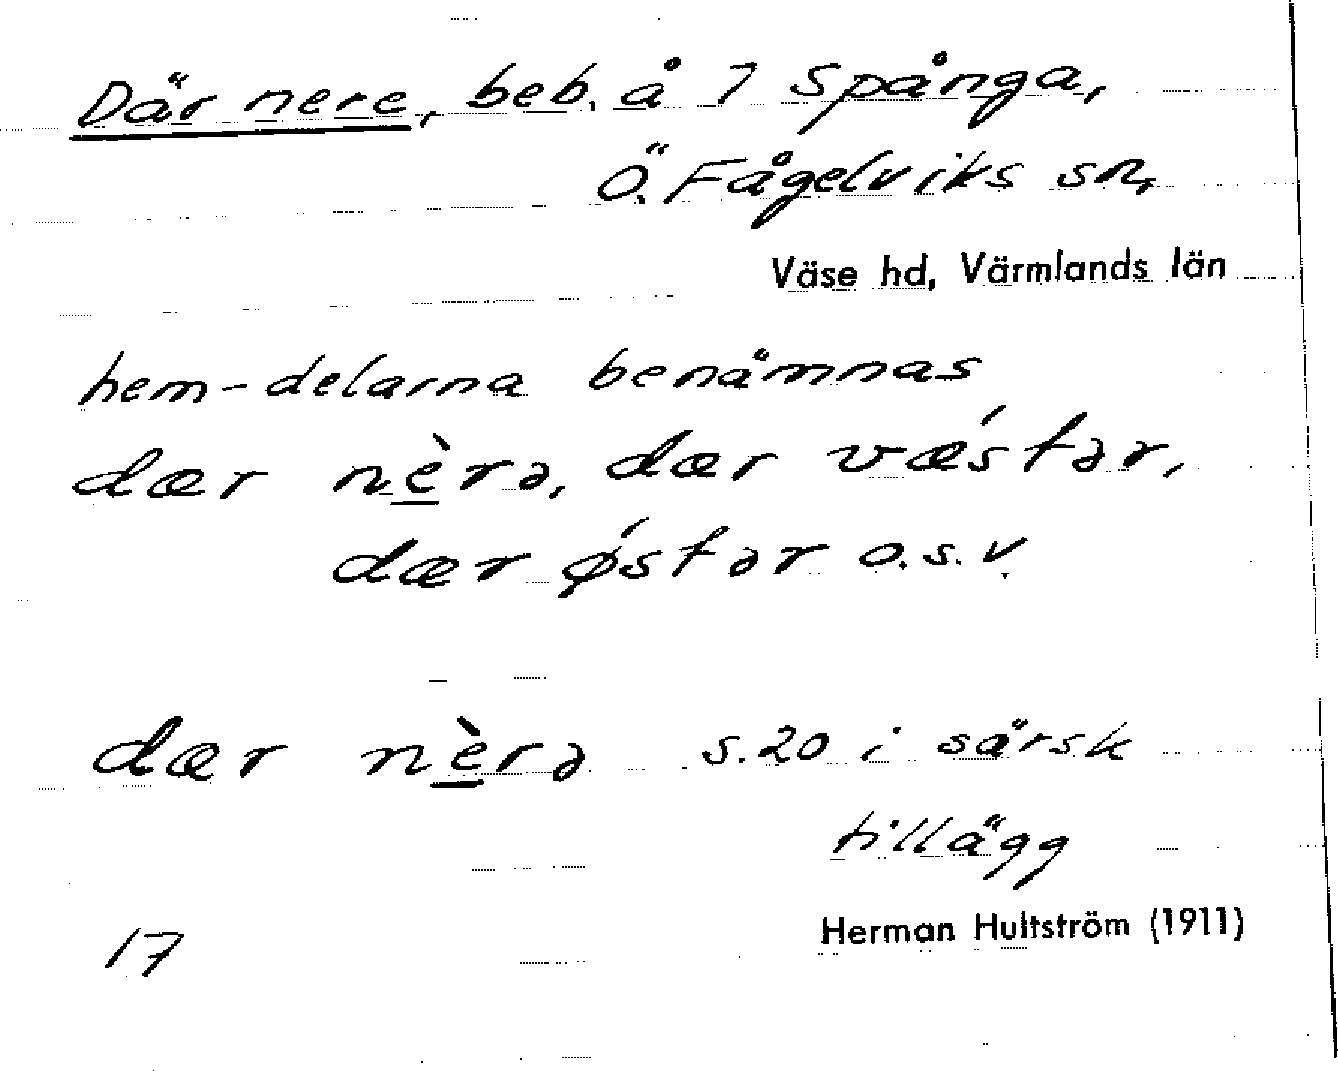 Där nere, beb. å 7 Spånga,
Ö. Fågelviks sn,
Väse hd, Värmlands län
hem-delarna benämnas
dær nèrə, dær væ´stər,
dær ǿstər o.s.v.
dær nèrə s.20 i särsk
tillägg
17 Herman Hultström (1911)